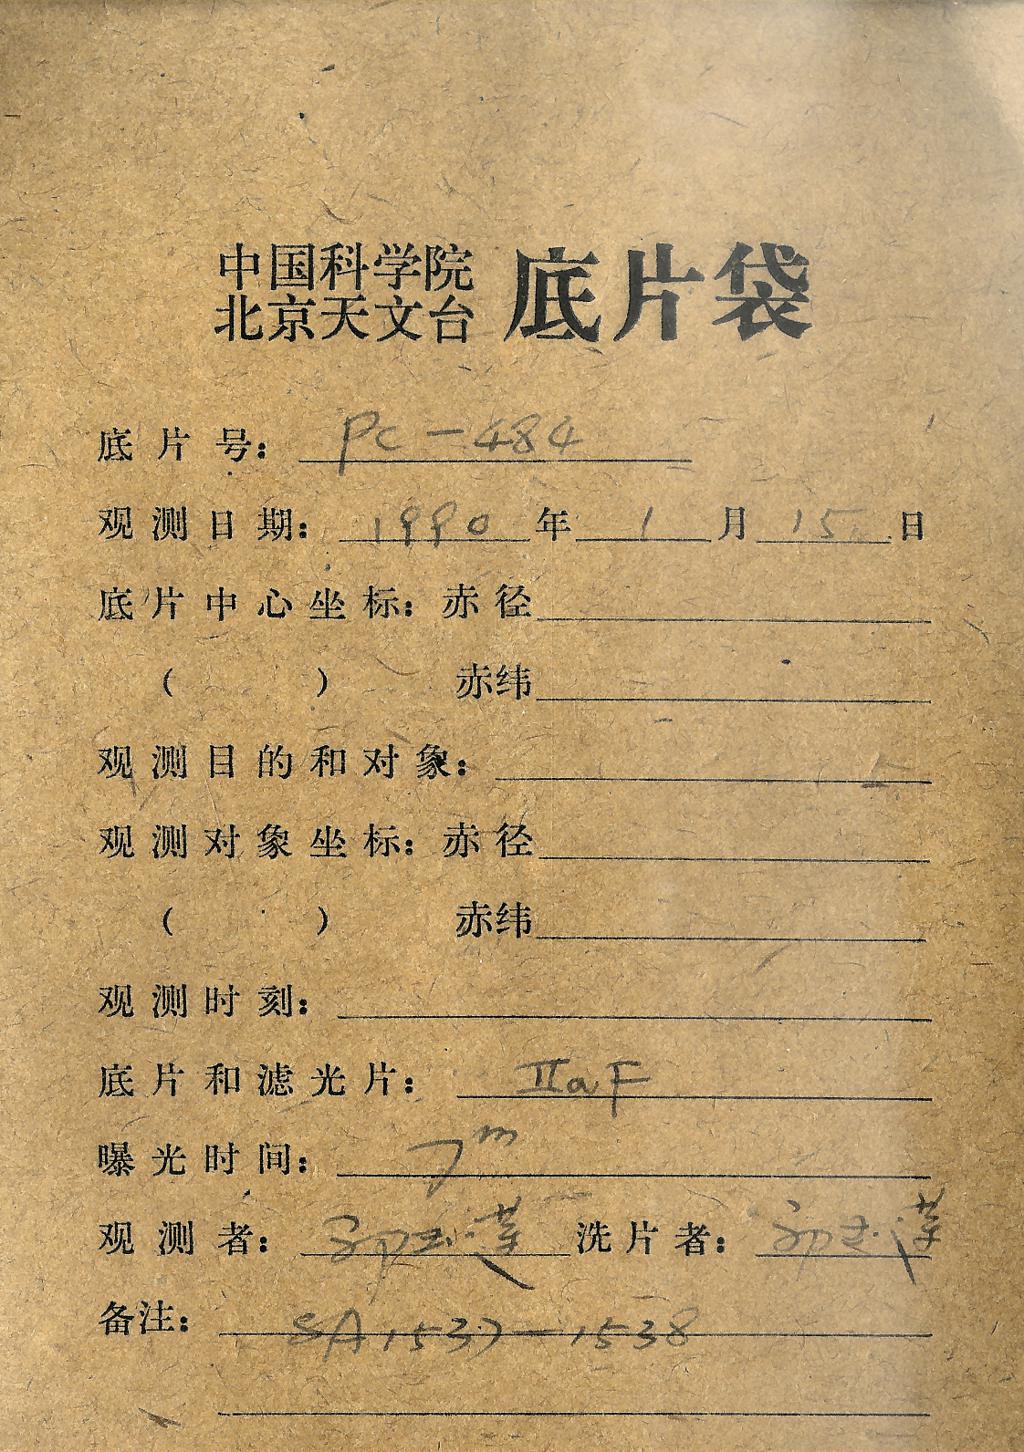 中国科学院
北京天文台 底片袋
底片号: PC-484
观测日期: 1990年 1月 15日
底片中心坐标: 赤径
( ) 赤纬
观测目的和对象:
观测对象坐标: 赤径
( ) 赤纬
观测时刻:
底片和滤光片: IIaF
曝光时间: 7m
观测者: 洗片者:
备注: SA 1537-1538